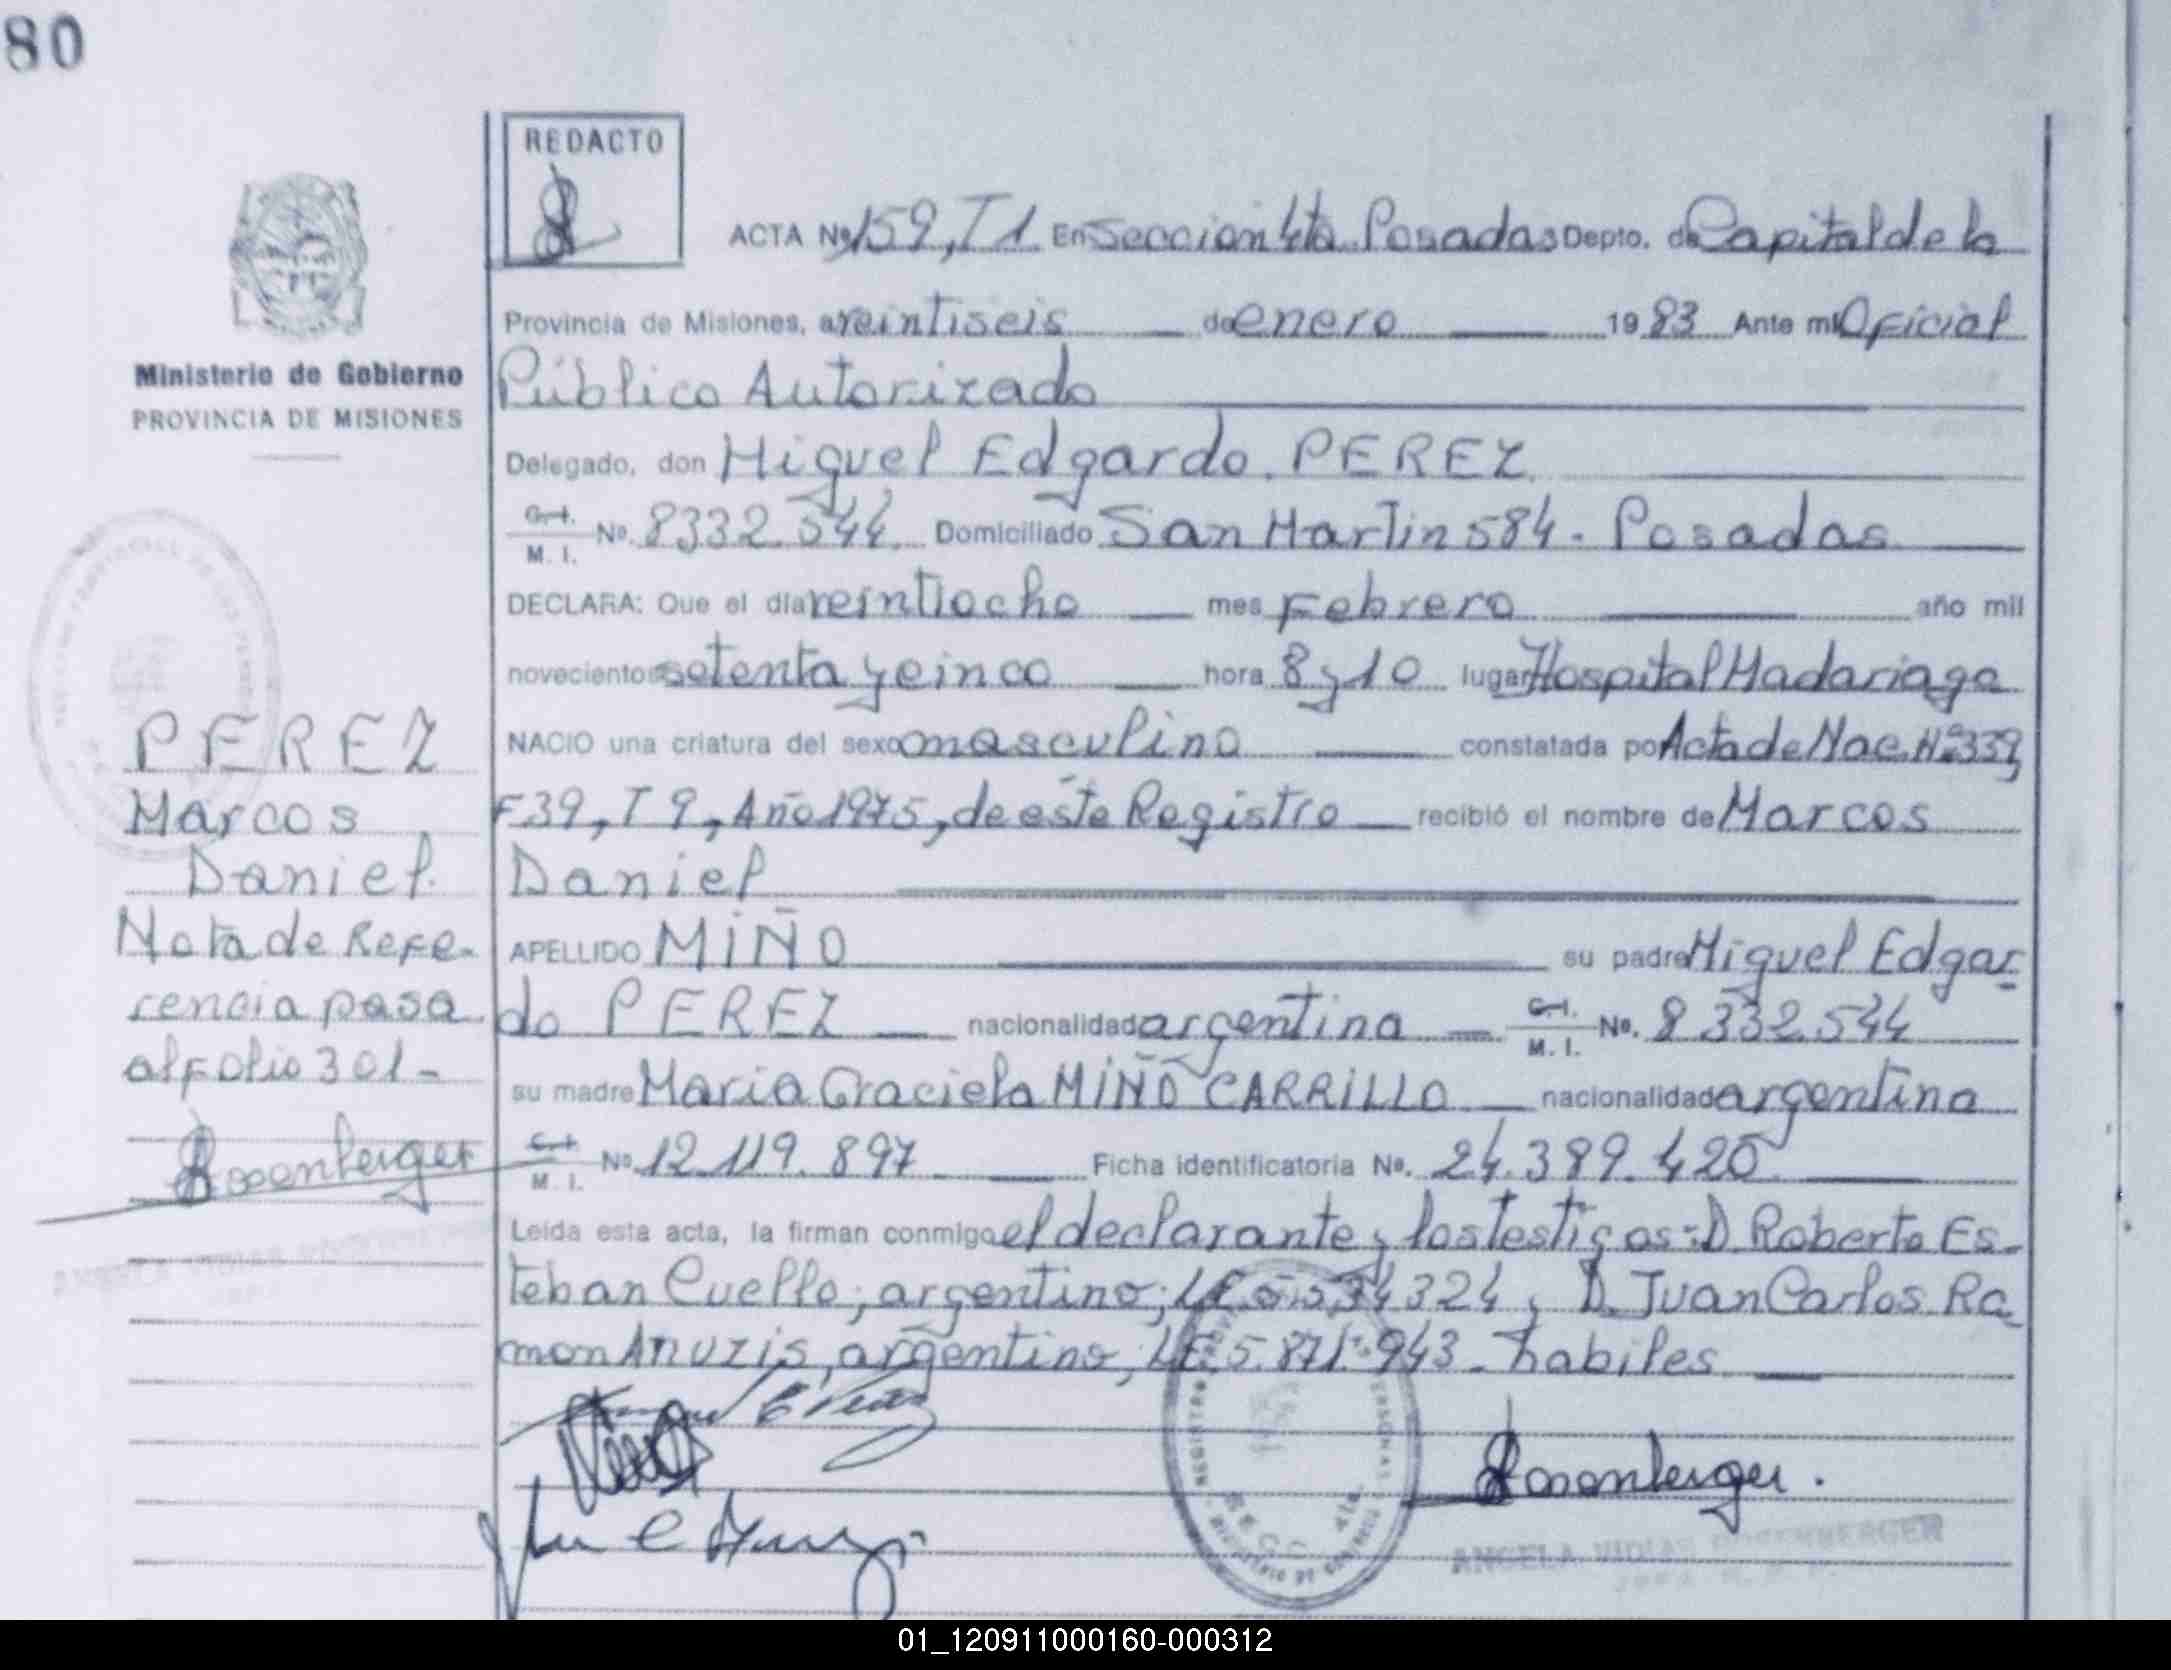 80
REDACTO
ACTA Nº 159, T 1 En Seccion 4ta Posadas Depto. de Capital de la
Provincia de Misiones, a veintiseis de enero 19 83 Ante mi Oficial
Público Autorizado
Delegado, don Miguel Edgardo PEREZ
C.I. M. I. Nº. 8332.544. Domiciliado San Martin 584 - Posadas
DECLARA: Que el dia veintiocho mes Febrero año mil
novecientos setenta y cinco hora 8 y 10 lugar Hospital Madariaga
NACIO una criatura del sexo masculino constatada por Acta de Nac. Nº 339,
F 39, T 9, Año 1975, de este Registro recibió el nombre de Marcos
Daniel
APELLIDO MIÑO su padre Miguel Edgar
do PEREZ nacionalidad argentina C.I. M. I. Nº. 8 332.544
su madre Maria Graciela MIÑO CARRILLO nacionalidad argentina
C.I. M. I. Nº 12.119.897 Ficha identificatoria Nº. 24.389.420
Leida esta acta, la firman conmigo el declarante y los testigos: D. Roberto Es-
teban Cuello, argentino, LE 5.534324, D. Juan Carlos Ra
mon Anuzis, argentino, LE. 5.871.943 - habiles
Rosenberger.
ANGELA VIDIAS ROSENBERGER
Ministerio de Gobierno
PROVINCIA DE MISIONES
PEREZ
Marcos
Daniel.
Nota de Refe-
rencia pasa
al folio 301-
Rosenberger
ANGELA VIDIAS
01_120911000160-000312